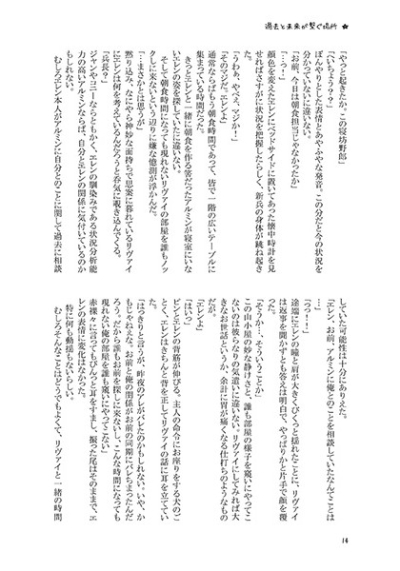 過去と未来が繋ぐ場所 ★
「やっと起きたか、この寝坊野郎」
「へいちょう？？」
ぼんやりとした表情とあやふやな発音。この分だと今の状況を
分かっていないに違いない。
「お前、今日は朝食担当じゃなかったか」
「…っ！」
顔色を変えたエレンにベッドサイドに置いてあった懐中時計を見
せればさすがに状況を把握したらしく、新兵の身体が跳ね起き
「うわぁ、やべ、マジか！」
「そのマジだ、エレン」
通常ならばもう朝食時間であって、皆で一階の広いテーブルに
集まっている時間だった。
きっとエレンと一緒に朝食を作る筈だったアルミンが寝室にいな
いエレンの姿を探していたに違いない。
そして朝食時間になっても現れないリヴァイの部屋を誰もノッ
クしに来ないという辺りに嫌な憶測が浮かんだ。
「…まさかとは思うが」
黙り込み、なにやら神妙な面持ちで思案に暮れているリヴァイ
にエレンは何を考えているんだろうと呑気に覗き込んでくる。
「兵長？」
ジャンやコニーならともかく、エレンの馴染みである状況分析能
力の高いアルミンならば、自分とエレンの関係に気付いているのか
もしれない。
むしろエレン本人がアルミンに自分とのことに関して過去に相談
していた可能性は十分にありえた。
「エレン、お前、アルミンに俺とのことを相談していたなんてことは
…」
「っ…！」
途端にエレンの瞳と肩が大きくびくっと揺れたことに、リヴァイ
は返事を聞かずとも答えは明白で、やっぱりかと片手で顔を覆
「そうか…、そういうことか」
この山小屋の妙な静けさと、誰も部屋の様子を窺いにやってこ
ないのは彼らなりの気遣いに違いない。リヴァイにしてみれば大
きなお世話というか、余計に胃が痛くなる仕打ちのようなもの
だが。
「エレンよ」
「はいっ」
ピンとエレンの背筋が伸びる。主人の命令にお座りをする犬のご
とく、エレンはきちんと背を正してリヴァイの話に耳を立ててい
「はっきりと言うが、昨夜のアレがバレたのかもしれない。いや、か
もじゃねえな。お前と俺の関係がお前の同期にバレちまったんだ
ろう。だから誰もお前を探しに来ないし、こんな時間になっても
現れない俺の部屋を誰も窺いにやってこない」
赤裸々に言ってもぴんっと耳をすまし、振った尾はそのままで、エ
レンの表情に変化はなかった。
特に何も動揺もないらしい。
むしろそんなことはどうでもよくて、リヴァイと一緒の時間
14